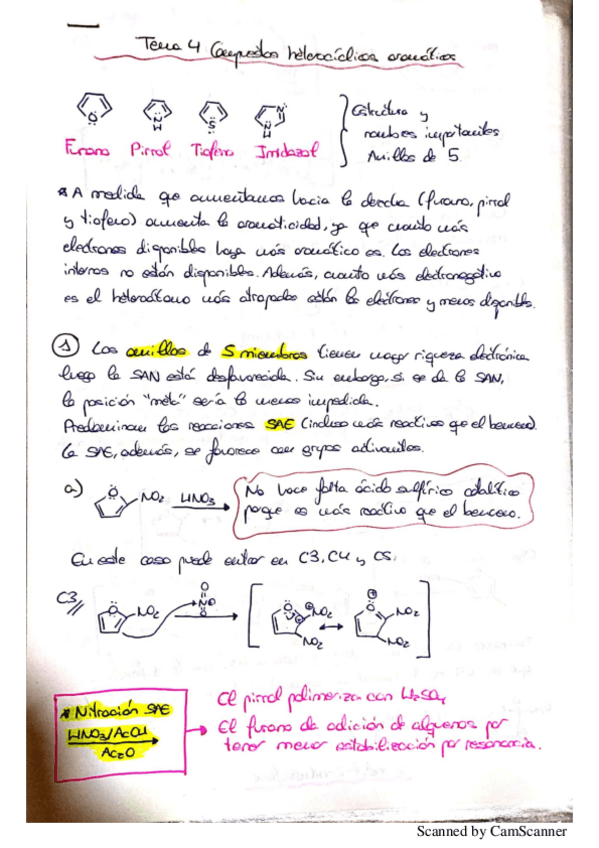 Tema 4 Compuestos heterocíclicos aromáticos
O N H S N N H
Furano Pirrol Tiofeno Imidazol
Estructura y
nombres importantes
Anillos de 5.
* A medida que aumentamos hacia la derecha (furano, pirrol
y tiofeno) aumenta la aromaticidad, ya que cuanto más
electrones disponibles haya más aromático es. Los electrones
internos no están disponibles. Además, cuanto más electronegativo
es el heteroátomo más atrapados están los electrones y menos disponibles.
1 Los anillos de 5 miembros tienen mayor riqueza electrónica
luego la SAN está desfavorecida. Sin embargo, si se da la SAN,
la posición "meta" sería la menos impedida.
Predominan las reacciones SAE (incluso más reactivos que el benceno).
La SAE, además, se favorece con grupos activantes.
a) O NO2 HNO3
No hace falta ácido sulfúrico catalítico
porque es más reactivo que el benceno.
En este caso puede entrar en C3, C4 y C5.
C3 O NO2 O NO O O NO2 NO2 O NO2 NO2
* Nitración SAE
HNO3/AcOH
Ac2O
El pirrol polimeriza con H2SO4
El furano da adición de alquenos por
tener menor estabilización por resonancia.
Scanned by CamScanner